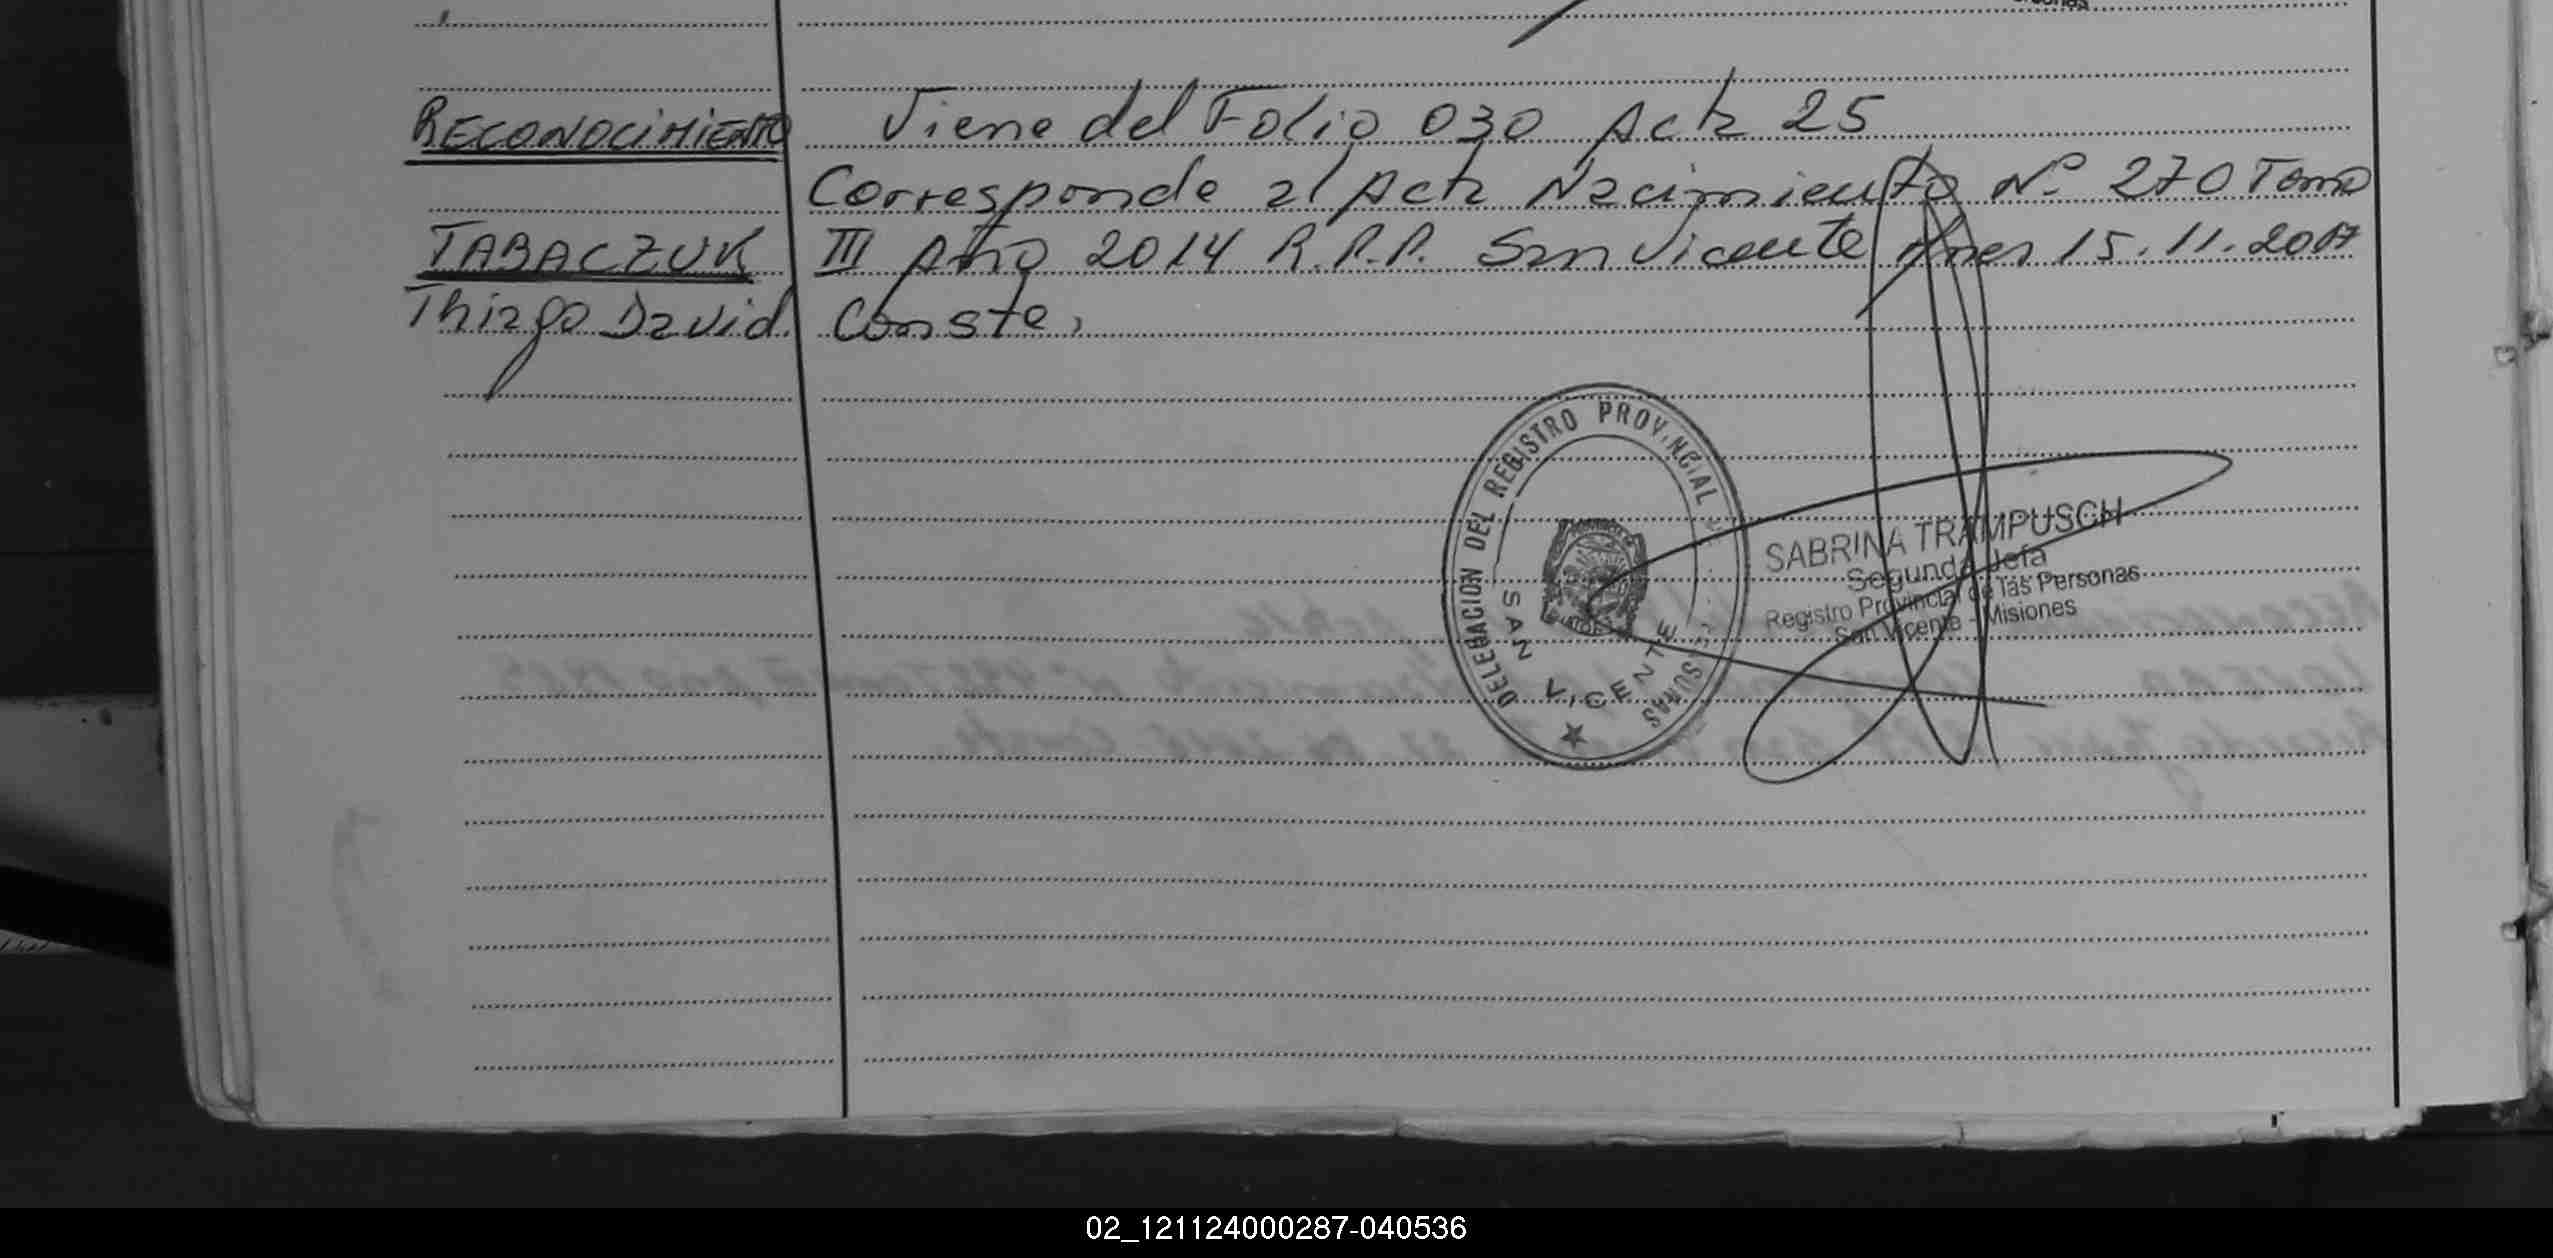 RECONOCIMIENTO Viene del Folio 030 Acta 25
Corresponde al Acta Nacimiento Nº 270 Tomo
TABACZUK III Año 2014 R.P.P. San Vicente Mnes 15.11.2017
Thiago David Conste,
DELEGACION DEL REGISTRO PROVINCIAL
SAN VICENTE
SABRINA TRAMPUSCH
Segunda Jefa
Registro Provincial de las Personas
San Vicente - Misiones
02_121124000287-040536